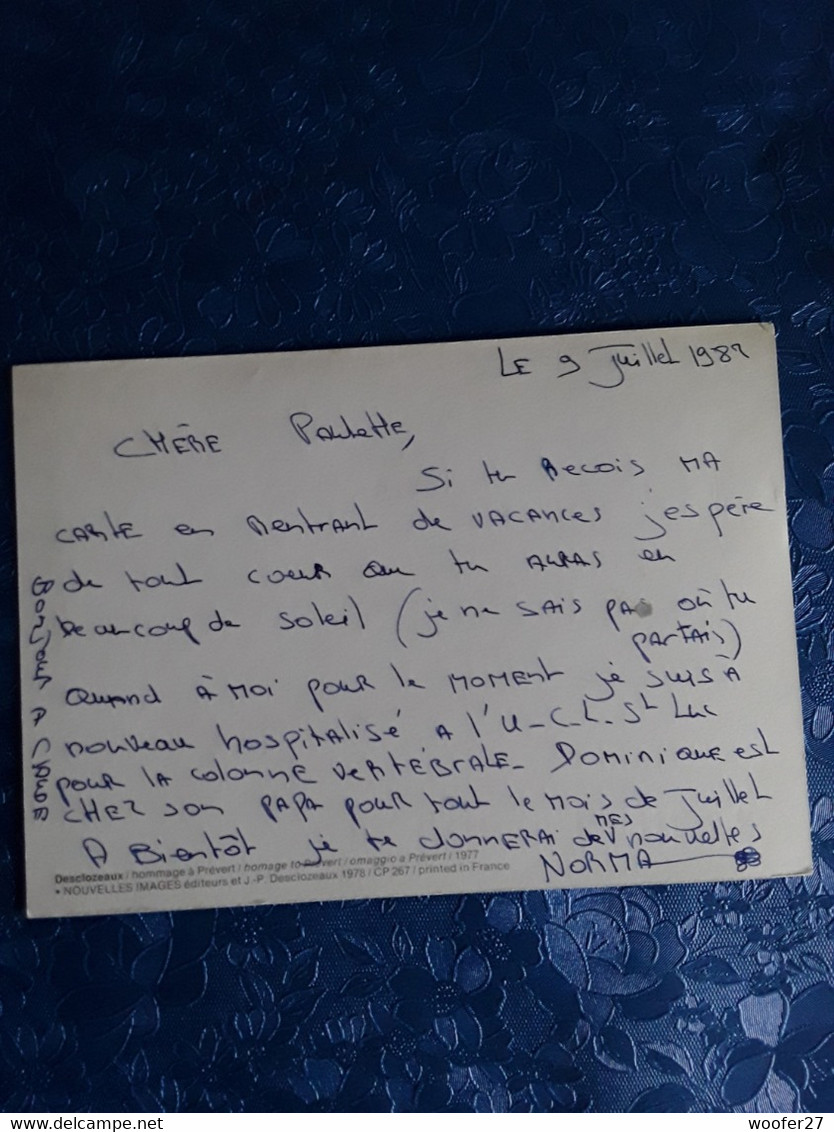 LE 9 Juillet 1982
CHÈRE Paulette,
Si tu Recois MA
CARTE en Rentrant de VACANCES j'espère
de tout coeur que tu AURAS eu
beaucoup de soleil (je ne SAIS pas où tu
partais)
Quand À MOI pour le MOMENT je suis À
nouveau hospitalisé A l'U-C-L-St Luc
pour LA colonne VERTÉBRALE- DOMINIQUE est
CHEZ son PAPA pour tout le mois de Juillet
A Bientôt je te donnerai de MES nouvelles
NORMA
BONJOUR A CLAUDE
Desclozeaux / hommage à Prévert / homage to Prévert / omaggio a Prévert / 1977
• NOUVELLES IMAGES éditeurs et J.-P. Desclozeaux 1978 / CP 267 / printed in France
delcampe.net
woofer27